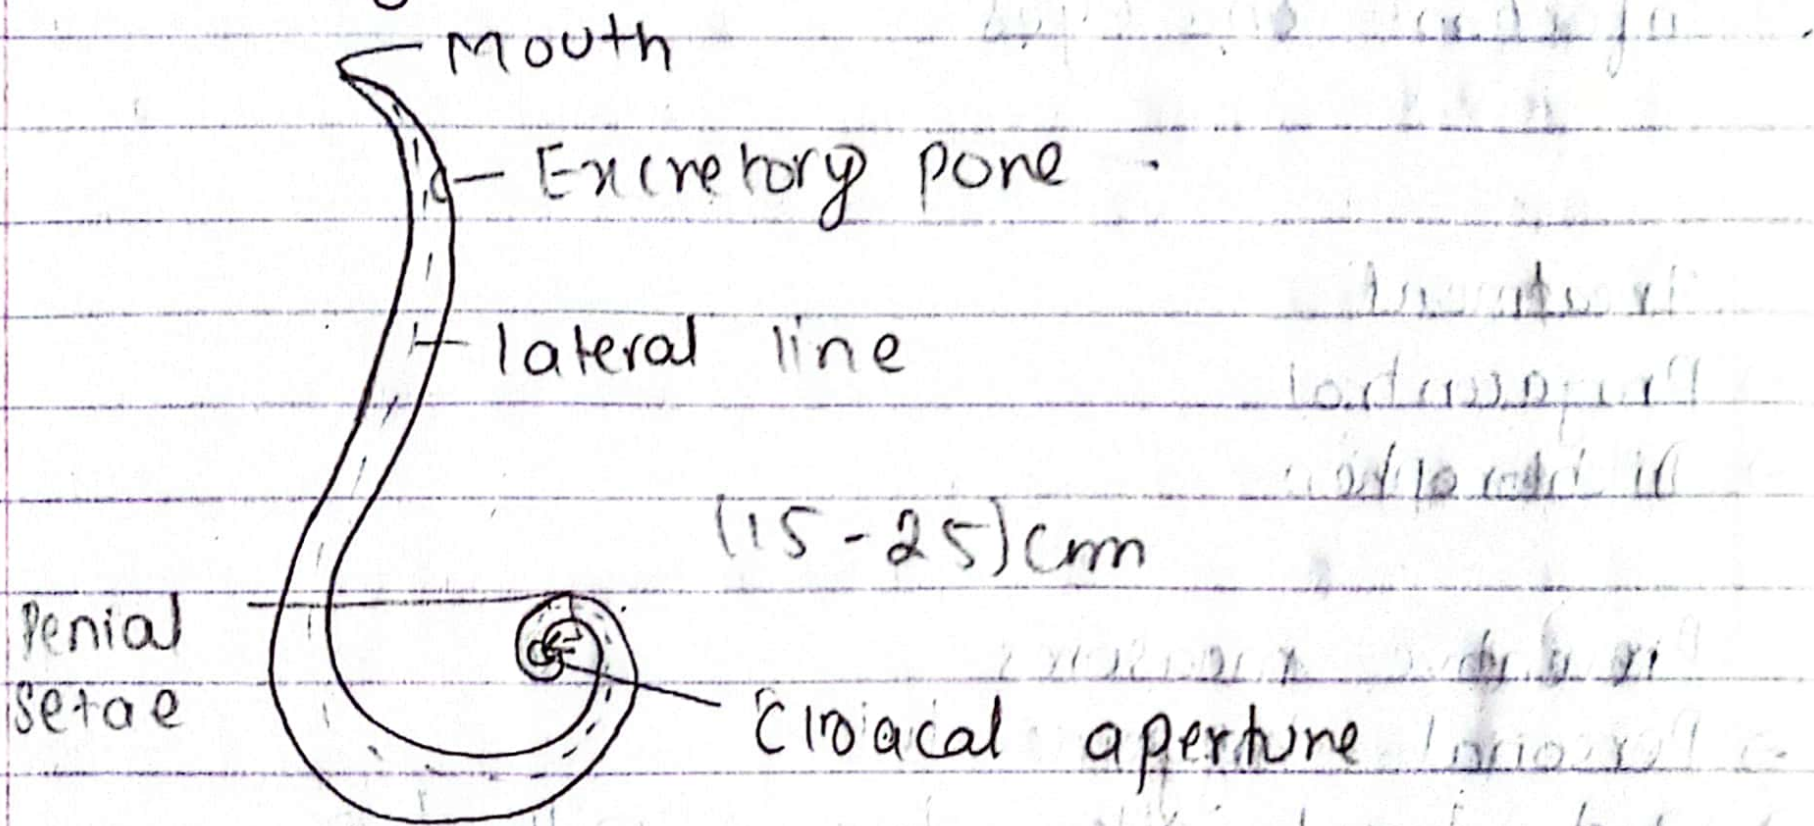 Mouth
Excretory pore
lateral line
(15-25)cm
Penial
Setae
Cloacal aperture